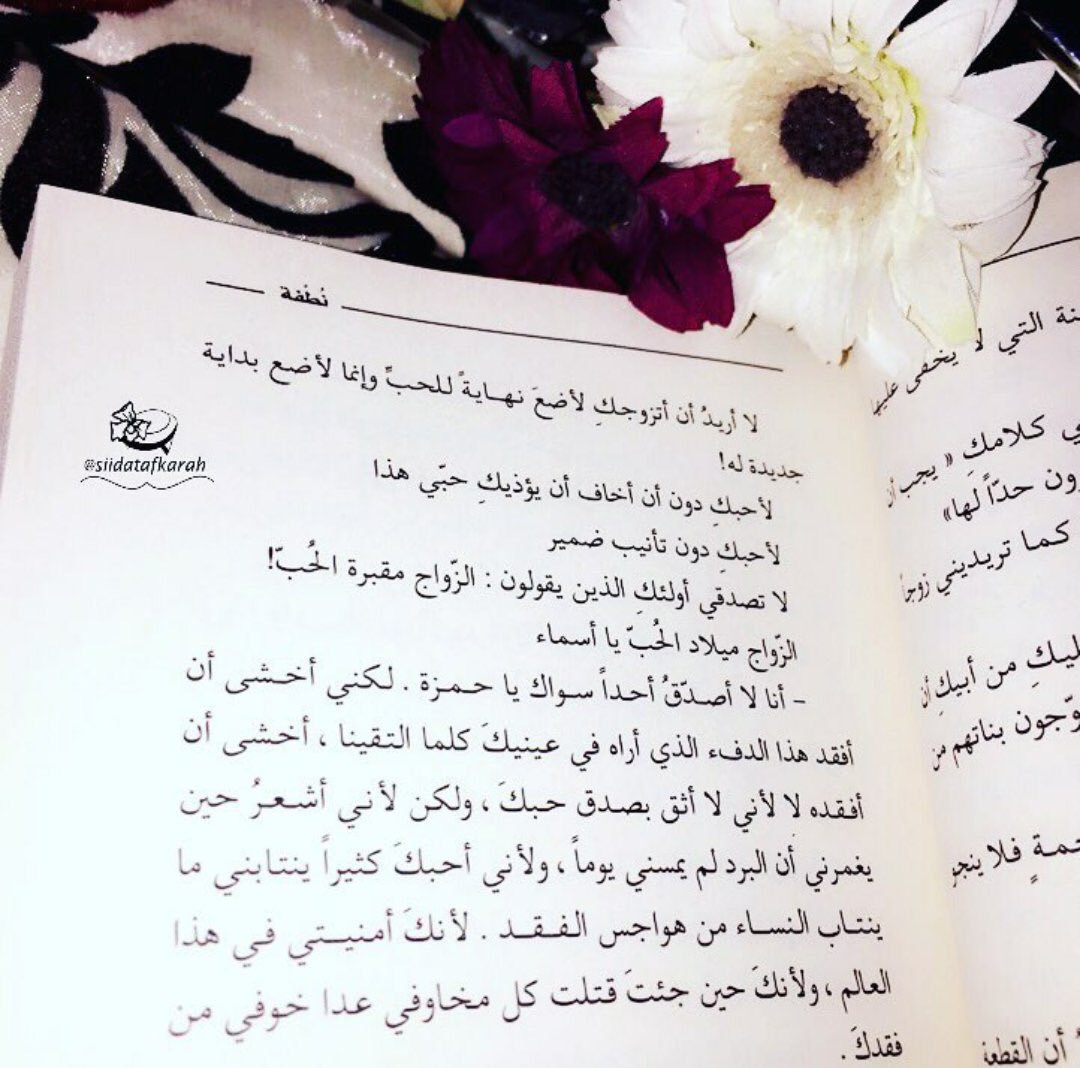 نُطْفة
لا أريدُ أن أتزوجكِ لأضعَ نهـايةً للحبِّ وإنما لأضع بداية
جديدة له!
لأحبكِ دون أن أخاف أن يؤذيكِ حبّي هذا
لأحبكِ دون تأنيب ضمير
لا تصدقي أولئكِ الذين يقولون : الزّواج مقبرة الحُبّ!
الزّواج ميلاد الحُبّ يا أسماء
– أنا لا أصدّقُ أحداً سـواك يا حـمـزة . لـكني أخـشـى أن
أفقد هذا الدفء الذي أراه في عينيكَ كلما التـقينا ، أخـشـى أن
أفـقـده لا لأني لا أثق بصدق حبـكَ ، ولكن لأنـي أشـعـرُ حين
يغمرني أن البرد لم يمسني يوماً ، ولأنـي أحبكَ كثيراً ينتـابني ما
ينتـاب النسـاء من هواجس الـفـقـد . لأنكَ أمنيـتي فـي هذا
العالم ، ولأنكَ حين جئتَ قتلت كل مخاوفي عدا خوفي من
فقدكَ .
@siidatafkarah
التي لا يخفى عليها
كلامكِ « يجب أن
حدّاً لها»
كما تريديني زوجاً
من أبيكِ أن
بناتهم من
فلا ينجو
أن القطعة